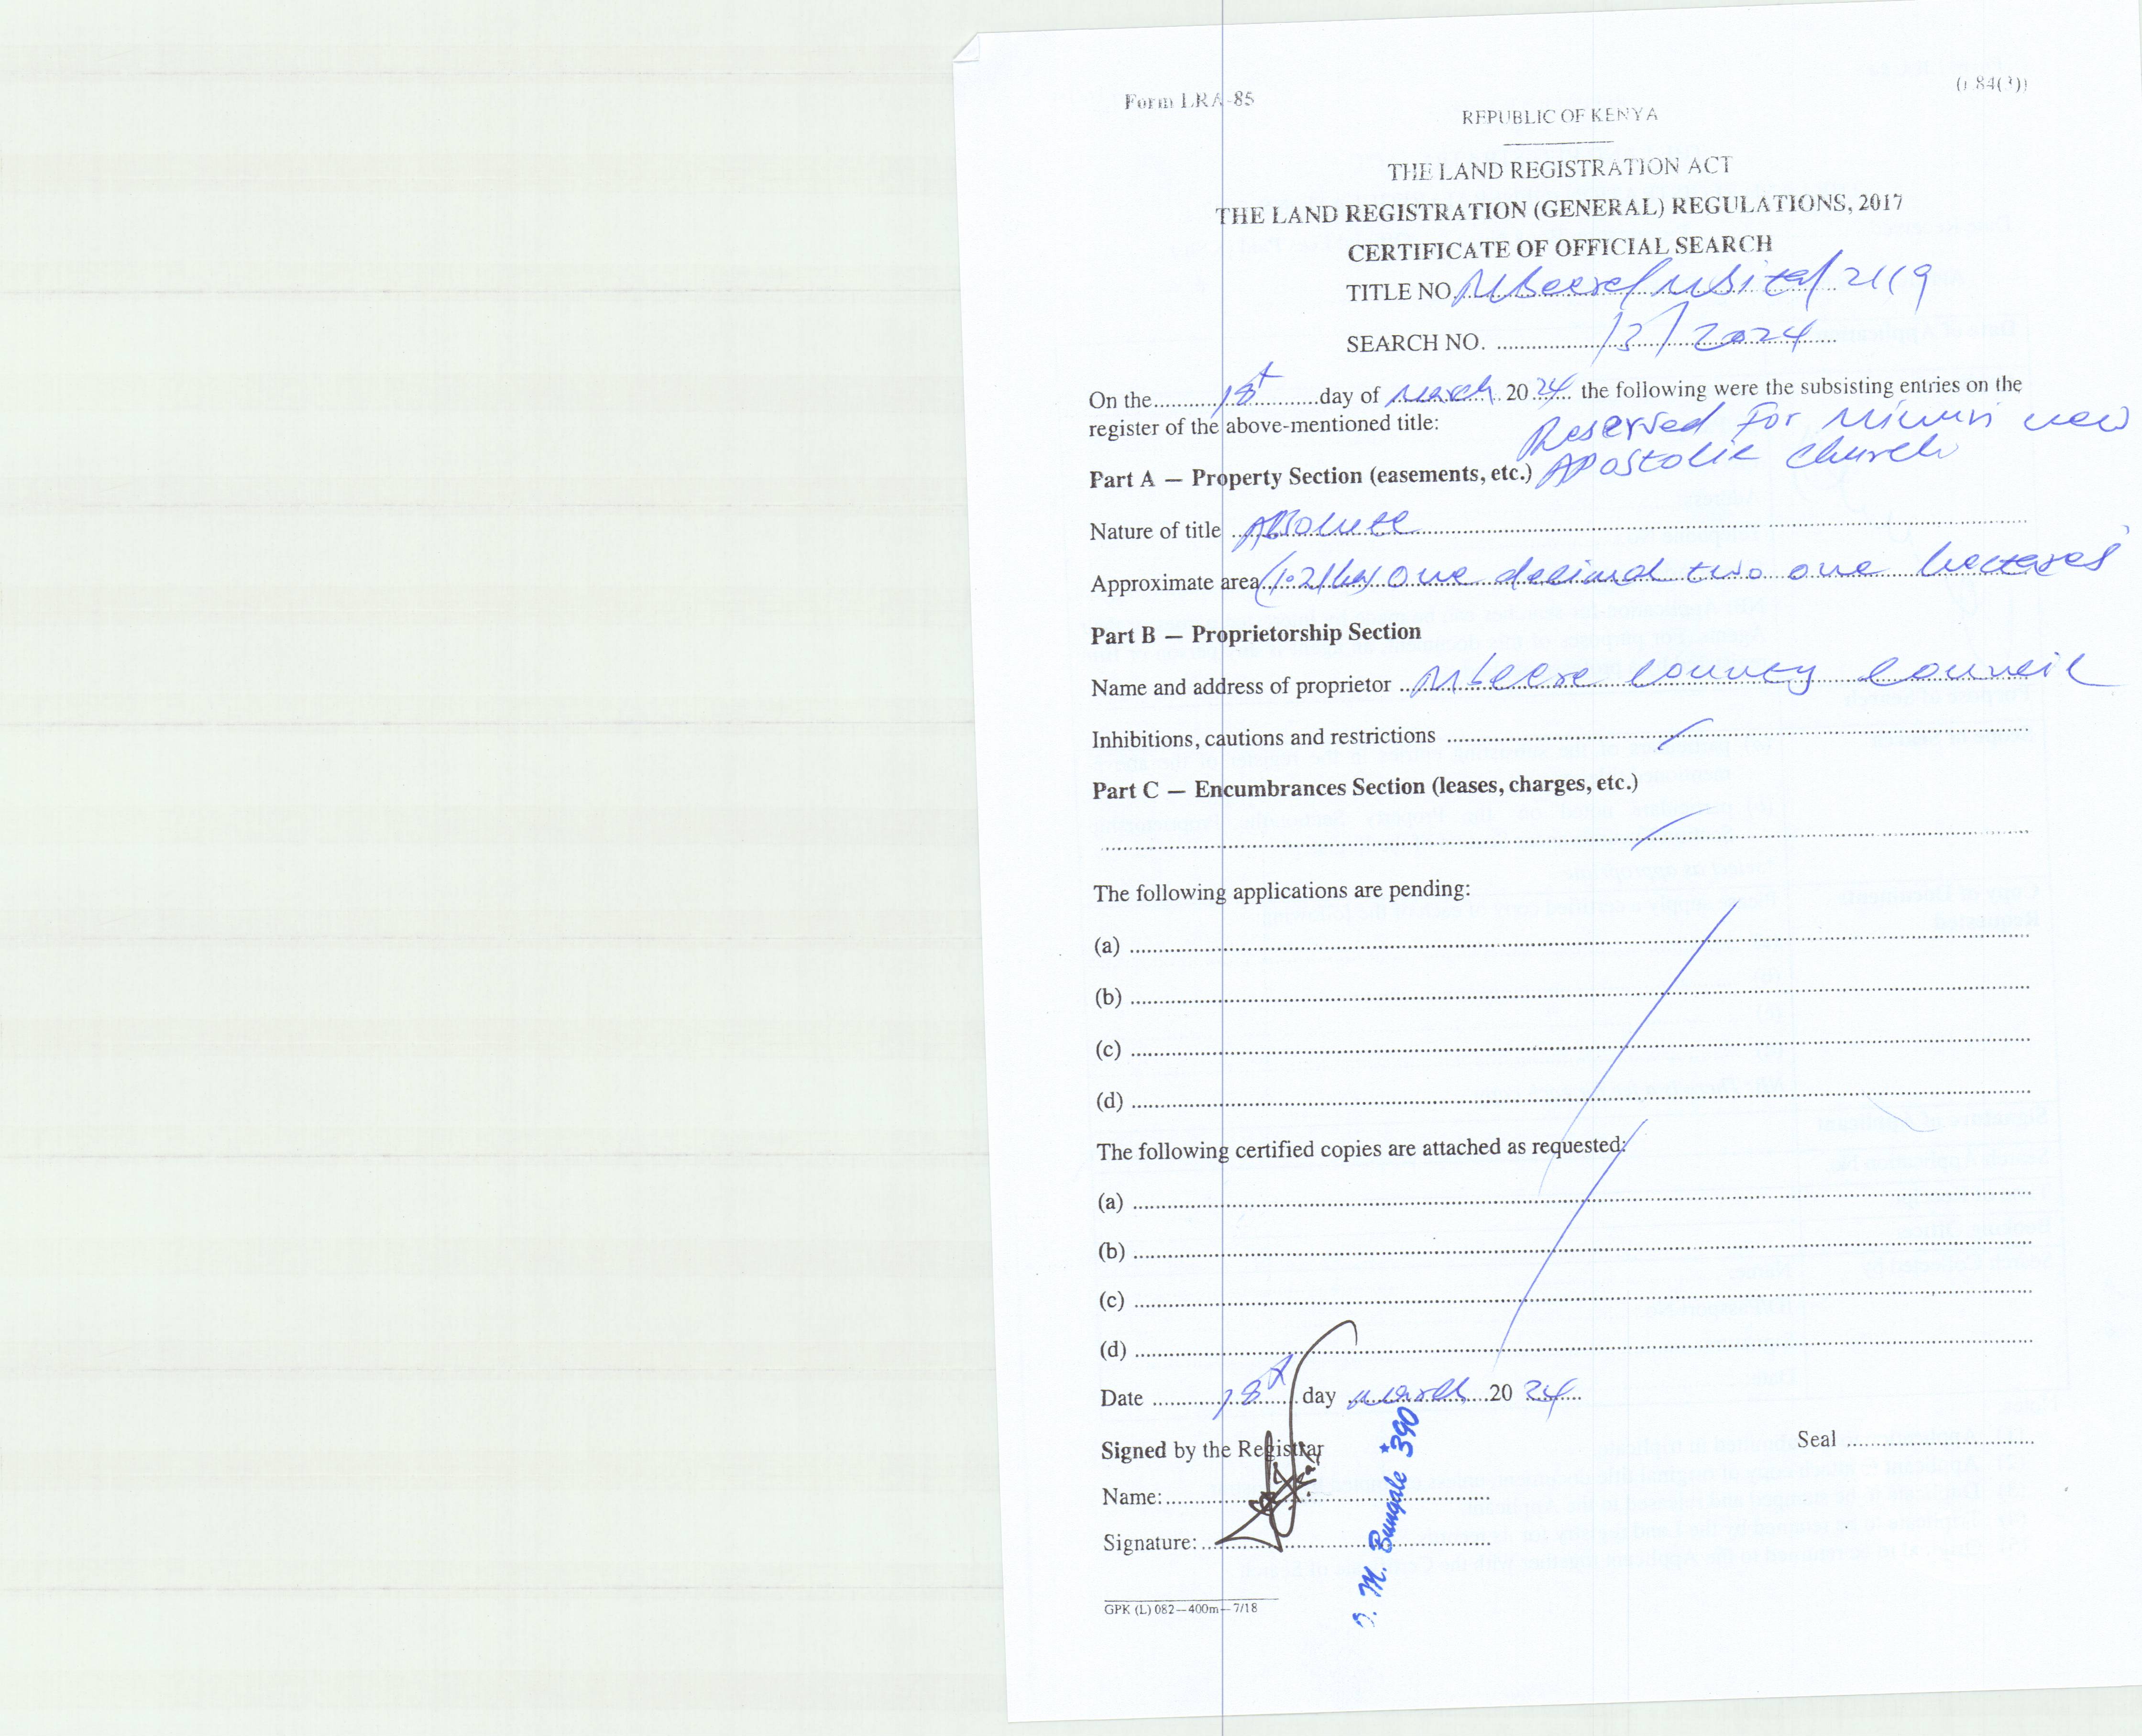 Form LRA-85
(r.84(3))
REPUBLIC OF KENYA
THE LAND REGISTRATION ACT
THE LAND REGISTRATION (GENERAL) REGULATIONS, 2017
CERTIFICATE OF OFFICIAL SEARCH
TITLE NO. Mbeere/Mbita/2119
SEARCH NO. /3/2024
On the 18th day of March 2024 the following were the subsisting entries on the
register of the above-mentioned title:
Reserved For new
Part A — Property Section (easements, etc.) Apostolic Church
Nature of title Absolute
Approximate area (1.21ha) One decimal two one hectares
Part B — Proprietorship Section
Name and address of proprietor Mbeere County Council
Inhibitions, cautions and restrictions
Part C — Encumbrances Section (leases, charges, etc.)
The following applications are pending:
(a)
(b)
(c)
(d)
The following certified copies are attached as requested:
(a)
(b)
(c)
(d)
Date 18th day March 2024
Signed by the Registrar
Seal
Name:
Signature:
J. M. Bungale *390
GPK (L) 082—400m—7/18